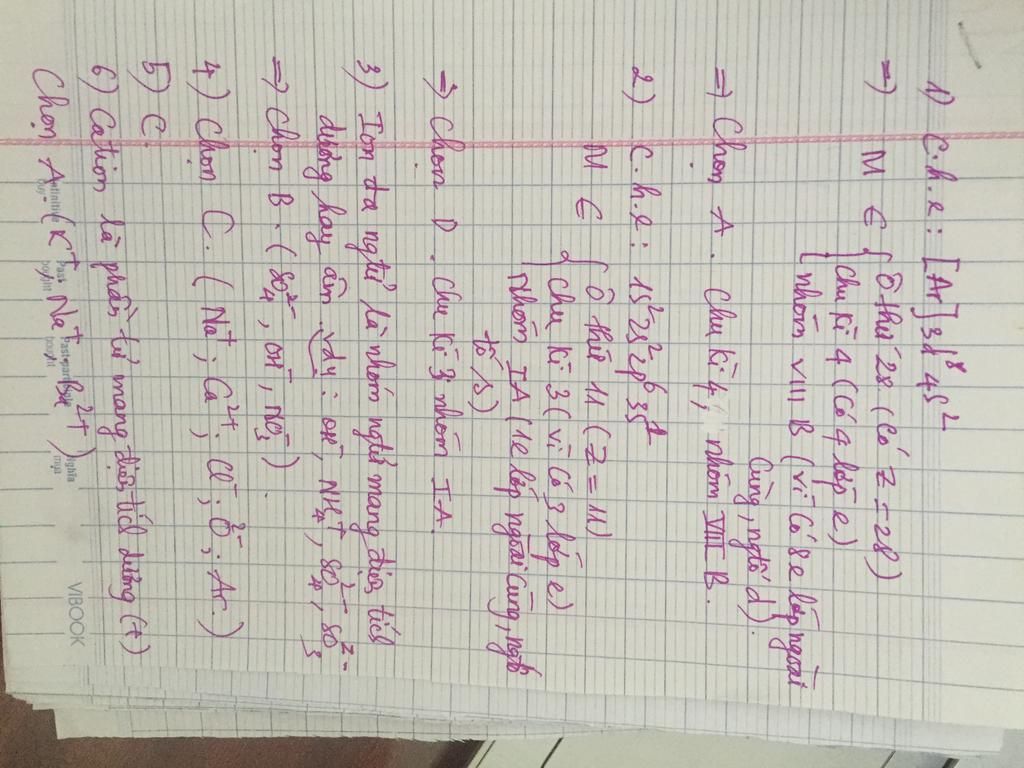 1) C.h.e : [Ar] 3d⁸ 4s²
=) M ∈ { Ô thứ 28 (có Z = 28)
chu kì 4 (có 4 lớp e)
nhóm VIII B (vì có 8e lớp ngoài
cùng, ngtố d).
=) Chọn A. Chu kì 4, nhóm VIII B.
2) C.h.e : 1s² 2s² 2p⁶ 3s¹
M ∈ { Ô thứ 11 (Z = 11)
chu kì 3 (vì có 3 lớp e)
Nhóm IA (1e lớp ngoài cùng, ngtố
s)
=) Chọn D. Chu kì 3 nhóm IA.
3) Ion đa ngtử là nhóm ngtử mang điện tích
dương hay âm. vdụ : OH⁻, NH₄⁺, SO₄²⁻, SO₃²⁻
=) Chọn B. (SO₄²⁻, OH⁻, NO₃⁻).
4) Chọn C. (Na⁺; Ca²⁺; Cl⁻; O²⁻; Ar.)
5) C.
6) Cation là phần tử mang điện tích dương (+)
Chọn A. (K⁺ Na⁺ ²⁺)
nghĩa
mua
VIBOOK